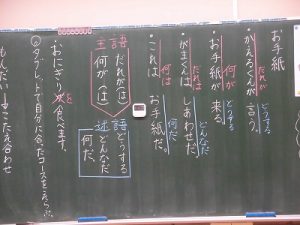 お手紙
だれが どうする
・かえるくんが 言う。
何が どうする
・お手紙が 来る。
だれは どんなだ
・がまくんは しあわせだ。
何は 何だ
・これは お手紙だ。
主語
だれが(は)
何が(は)
述語
どうする
どんなだ
何だ。
おにぎりを食べます。
タブレットで自分に合ったコースをえらぶ。
もんだい→こたえ合わせ